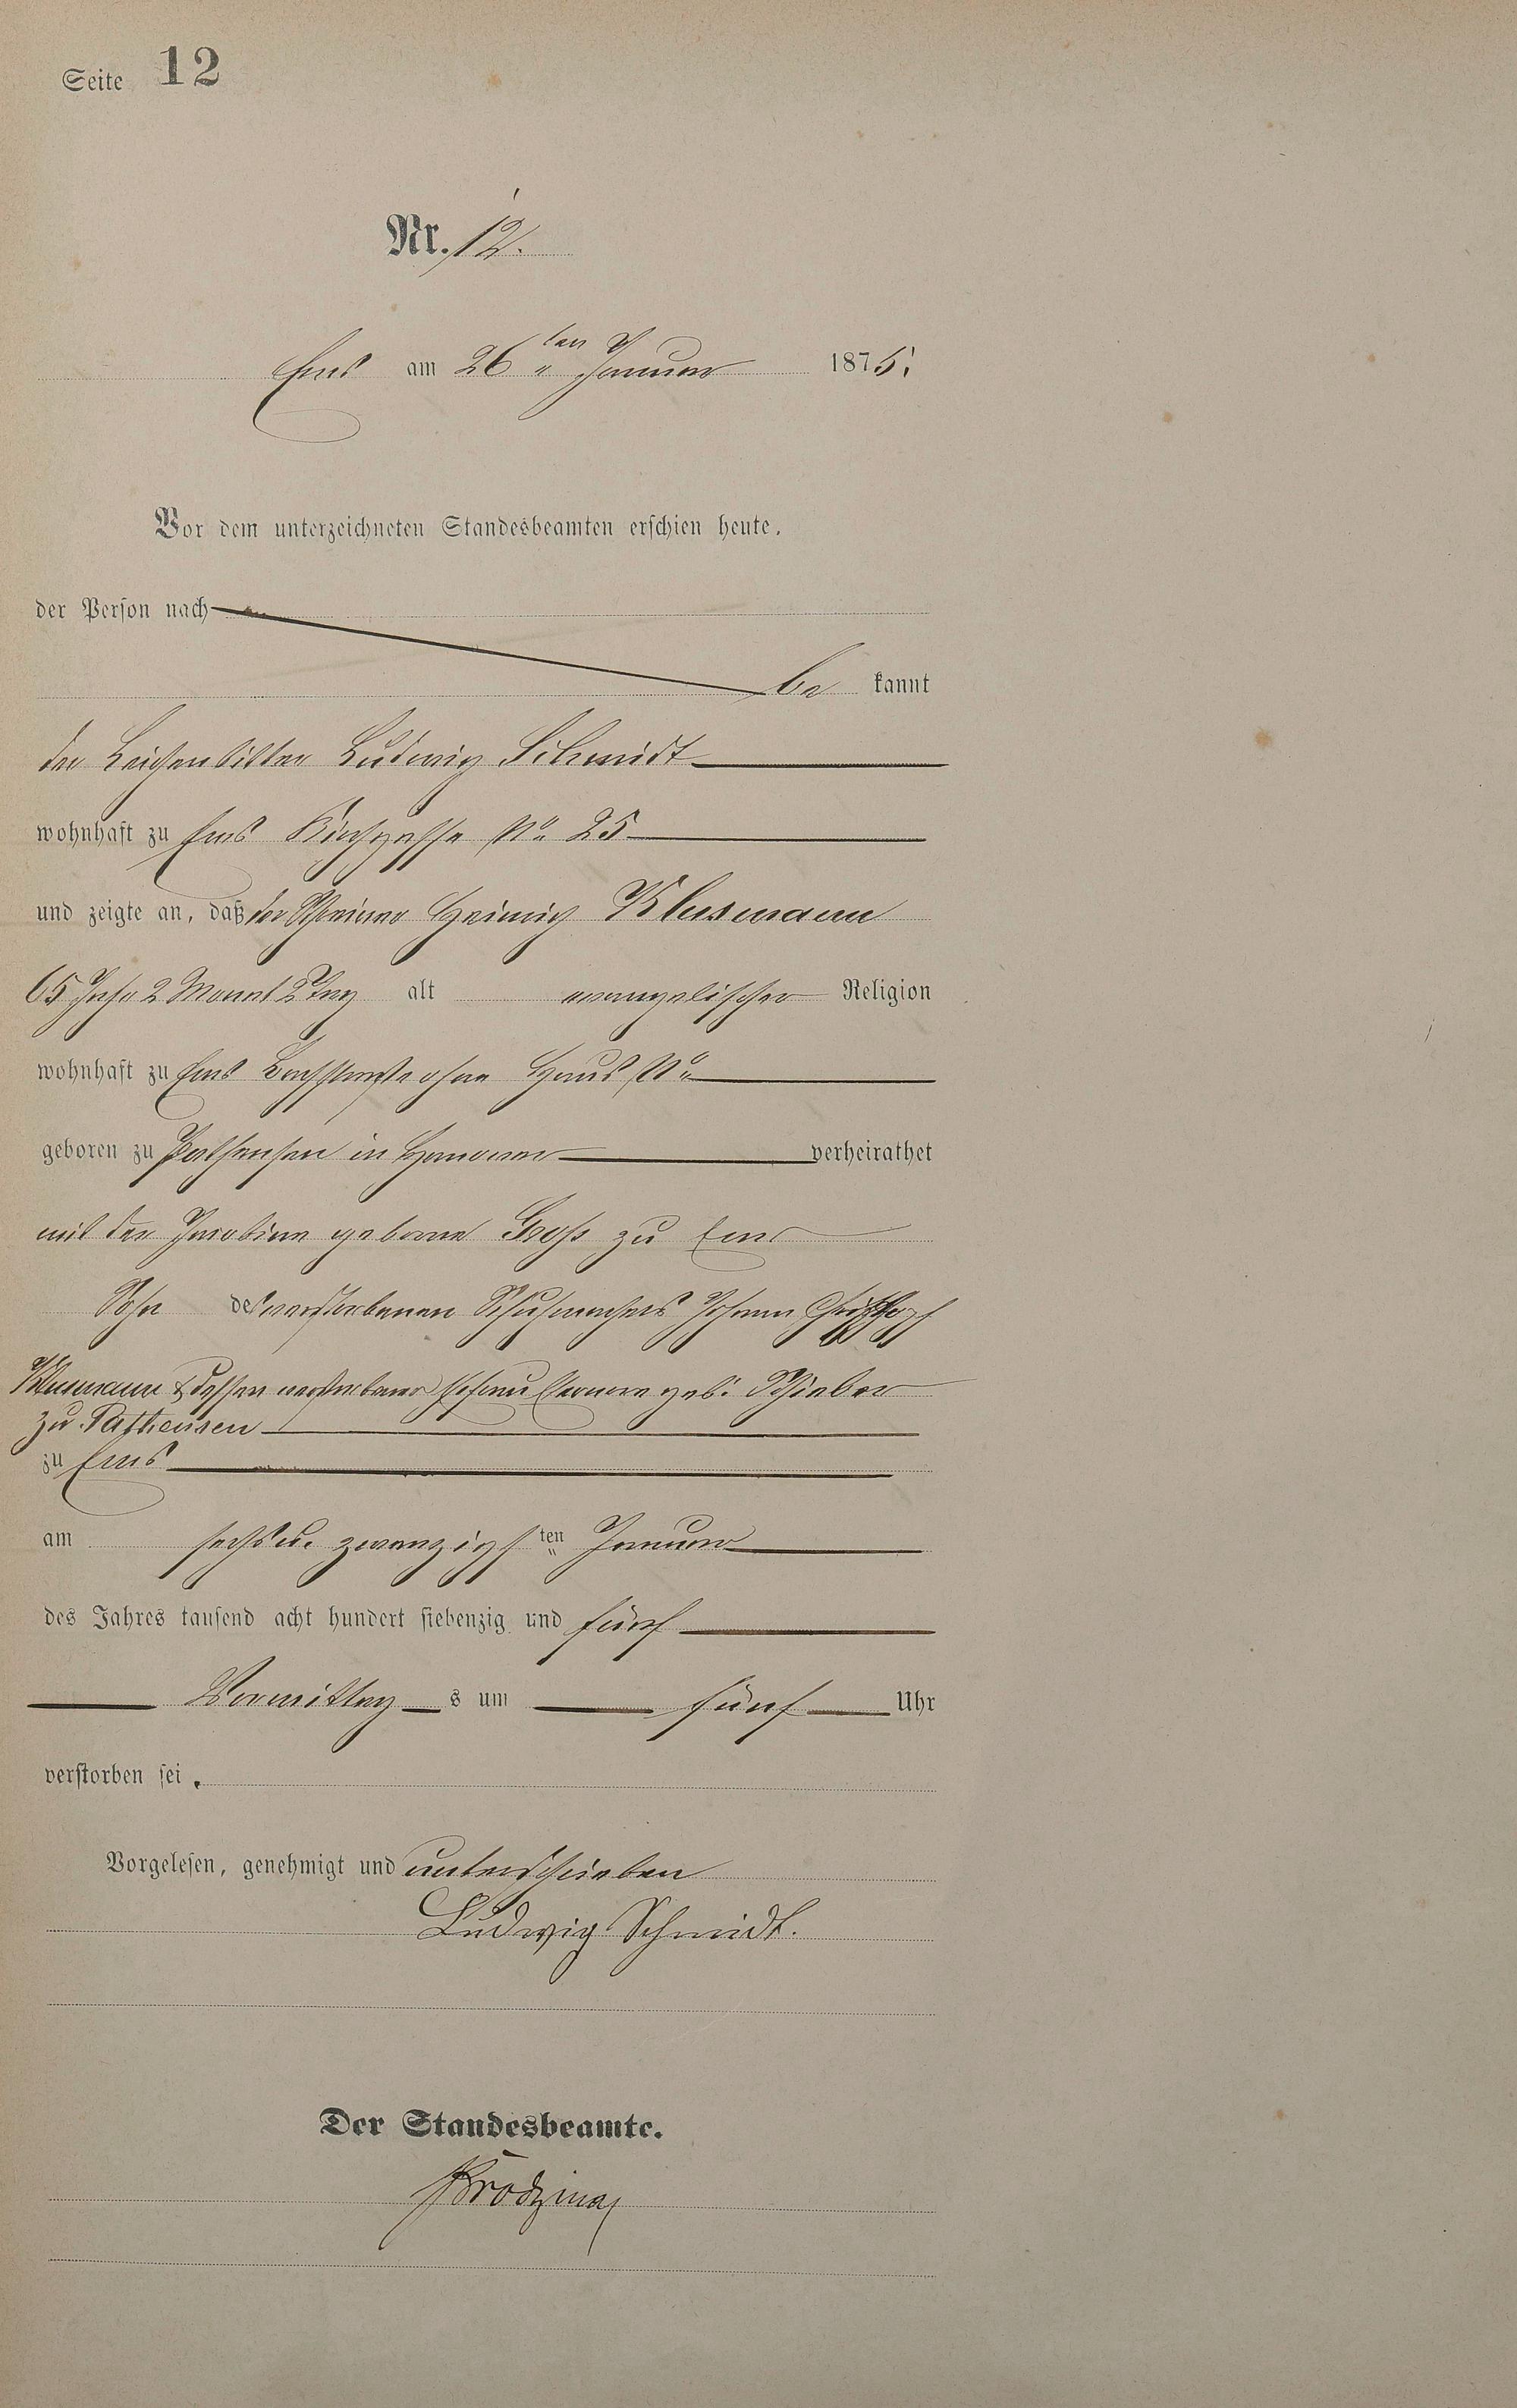 Seite 12
Nr. 12.
Ems am 26ten Januar 1875.
Vor dem unterzeichneten Standesbeamten erschien heute,
der Person nach
be kannt
der Leichenbitter Ludwig Schmidt
wohnhaft zu Ems Kirchgasse No 25
und zeigte an, daß der Schreiner Heinrich Klusmann
65 Jahr 2 Monat 2 Tag alt evangelischer Religion
wohnhaft zu Ems Bachstraße ohne Haus No
geboren zu in Hanover verheirathet
mit der Jacobine geborne Groß zu Ems
Sohn des verstorbenen Schuhmachers Johann Christoph
Klusmann & dessen verstorbener Ehefrau geb. Schieber
zu Pattensen
zu Ems
am sechs u. zwanzigsten Januar
des Jahres tausend acht hundert siebenzig und fünf
Vormittag s um fünf Uhr
verstorben sei.
Vorgelesen, genehmigt und unterschrieben
Ludwig Schmidt.
Der Standesbeamte.